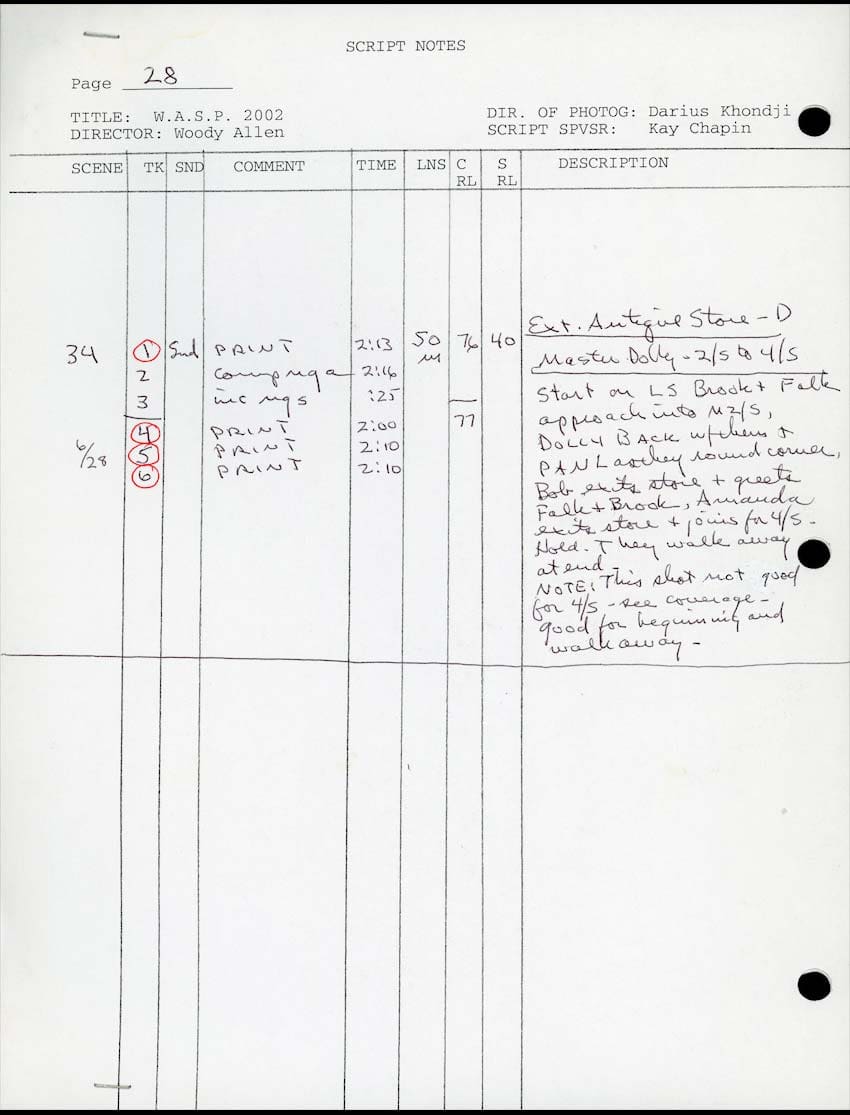 SCRIPT NOTES
Page 28
TITLE: W.A.S.P. 2002 DIR. OF PHOTOG: Darius Khondji
DIRECTOR: Woody Allen SCRIPT SPVSR: Kay Chapin
SCENE TK SND COMMENT TIME LNS C RL S RL DESCRIPTION
Ext. Antique Store - D
34 1 Snd PRINT 2:13 50 M 76 40
Master Dolly - 2/S to 4/S
2 comp nga 2:16
3 inc ngs :25
4 PRINT 2:00 77
6/28 5 PRINT 2:10
6 PRINT 2:10
Start on LS Brook + Falk
approach into M2/S,
DOLLY BACK w/them +
PAN L as they round corner,
Bob exits store + greets
Falk + Brook, Amanda
exits store + joins for 4/S -
Hold. They walk away
at end -
NOTE: This shot not good
for 4/S - see coverage -
good for beginning and
walk away -